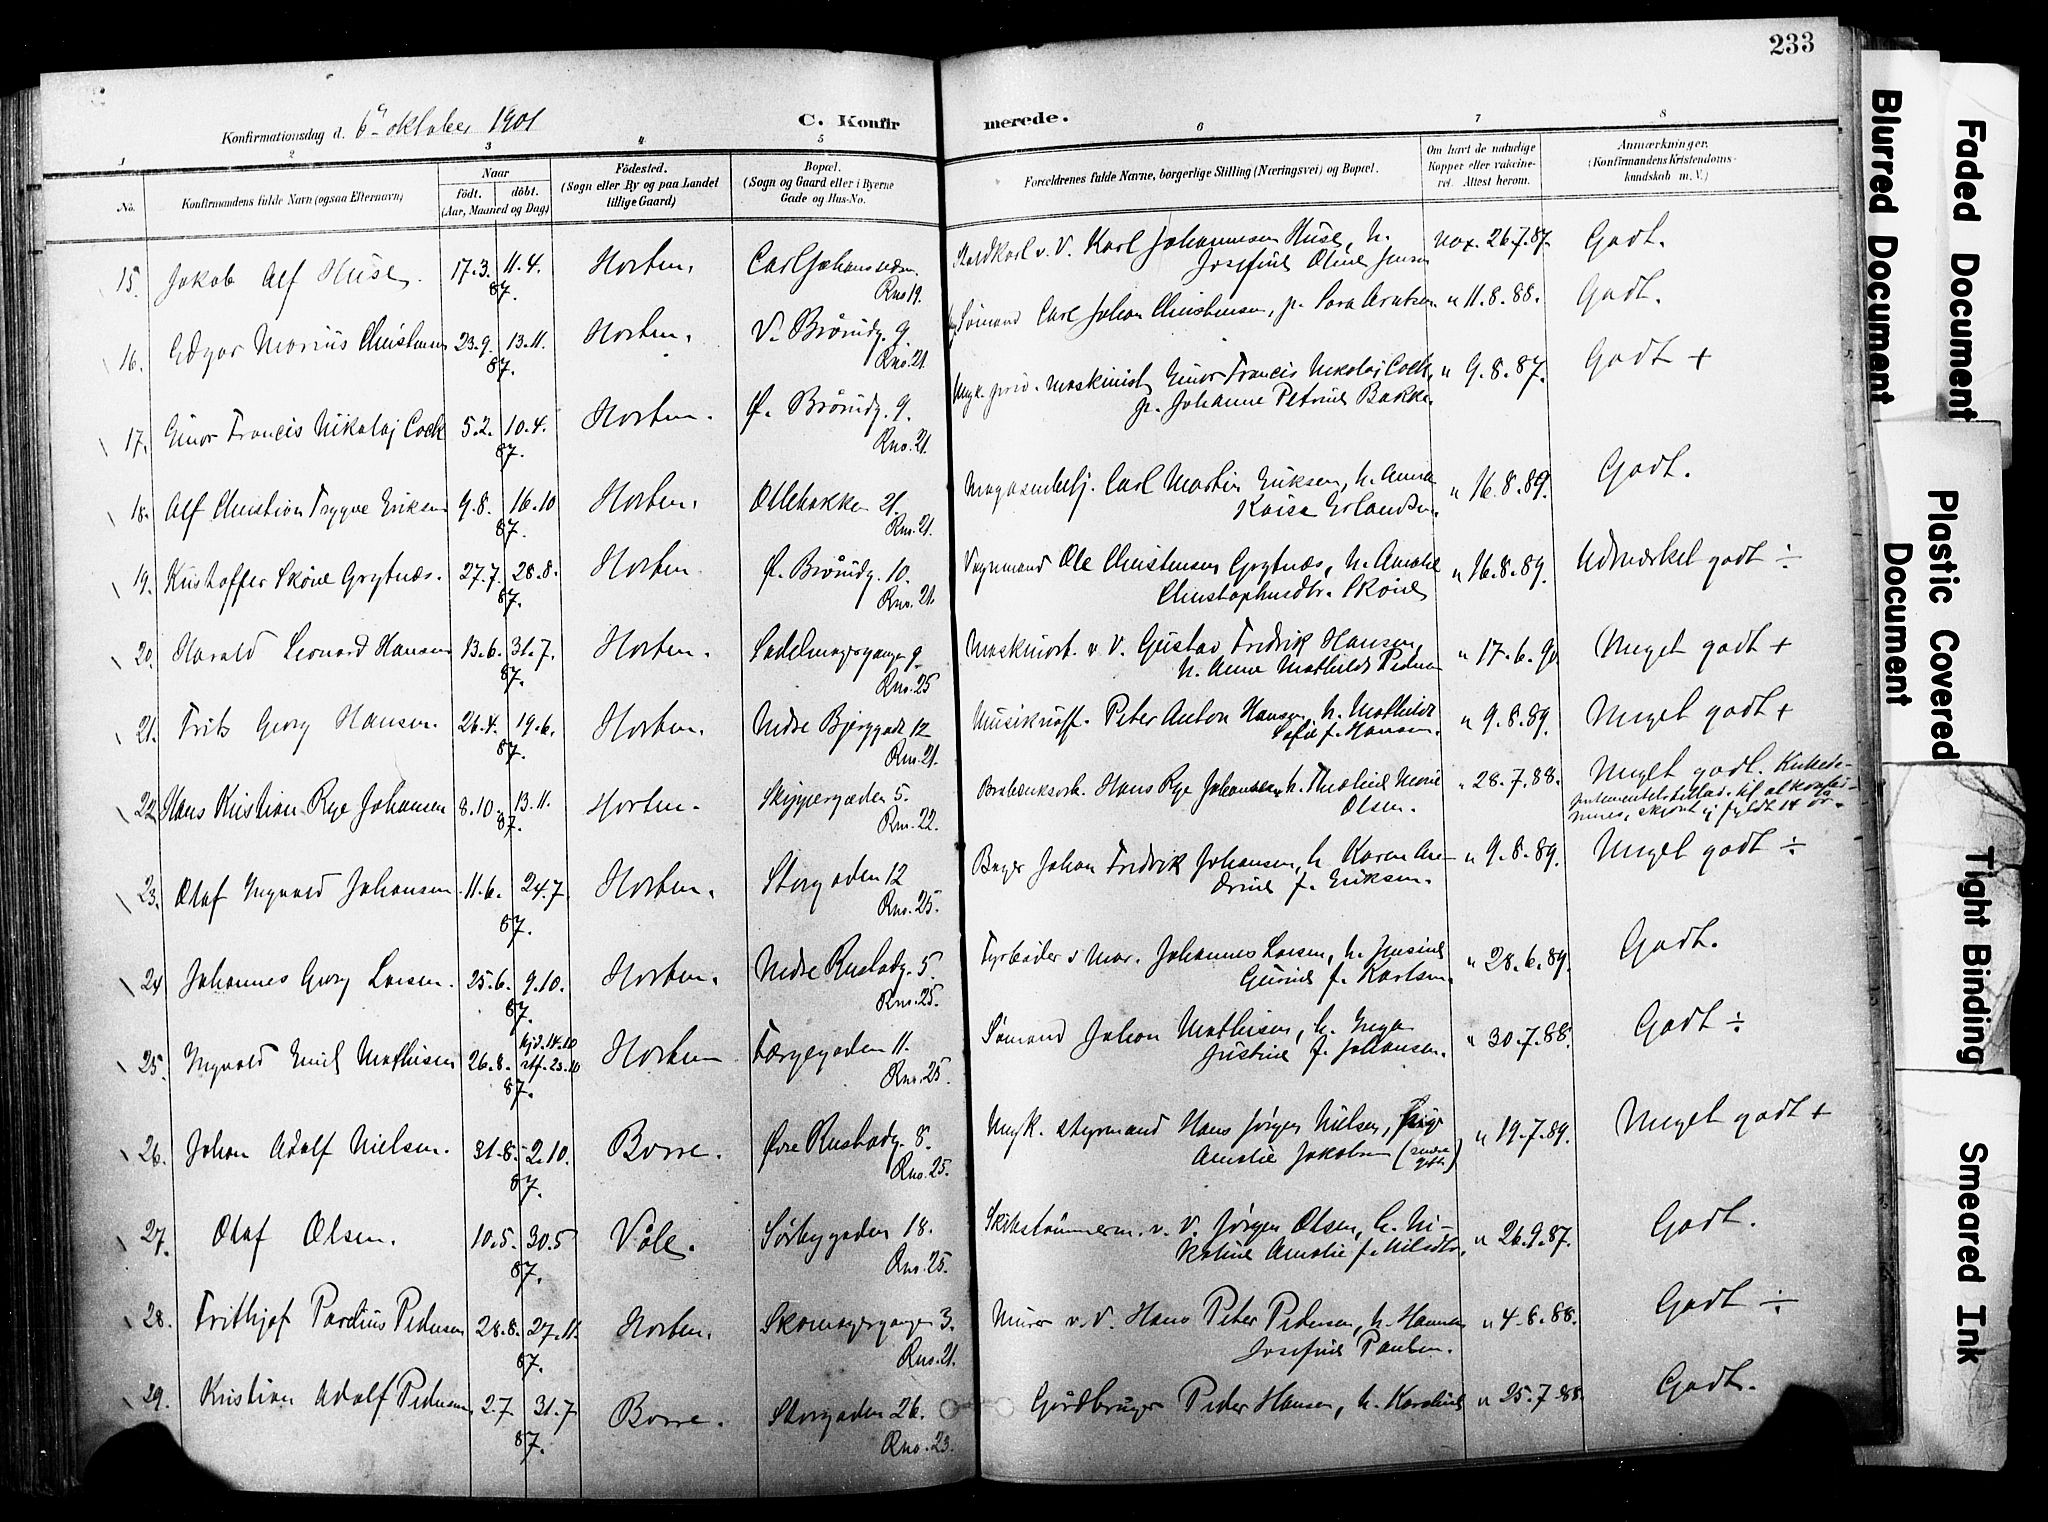 233
Konfirmationsdag d. 6te oktober 1901
C. Konfirmerede.
1 2 3 4 5 6 7 8
No.
Konfirmandens fulde Navn (ogsaa Efternavn)
Naar
födt. döbt.
(Aar, Maaned og Dag)
Födested.
(Sogn eller By og paa Landet
tillige Gaard)
Bopæl.
(Sogn og Gaard eller i Byerne
Gade og Hus-No.
Forældrenes fulde Navne, borgerlige Stilling (Næringsvei) og Bopæl.
Om havt de naturlige
Kopper eller vaccine-
ret. Attest herom.
Anmærkninger.
(Konfirmandens Kristendoms-
kundskab m.V.)
15. Jakob Alf Huse. 17.3. 11.4. Horten. Karl Johannesen Huse, h. vax. 26.7.87. Godt.
87. Rno 19. Josefine Oline Jensen
16. Edgar Marius Christensen 23.9. 13.11. Horten. V. Brårudg. 9. Sømand Carl Johan Christensen, p. Sara Arntsen " 11.8.88. Godt.
87. Rno. 21.
17. Einar Francis Nikolaj Cock 5.2. 10.4. Horten. Ø. Brårudg. 9. maskinist Einar Francis Nikolaj Cock, " 9.8.87. Godt +
87. Rno. 21. p. Johanne Petrine Bakke.
18. Alf Christian Trygve Eriksen 9.8. 16.10 Horten. Ollebakken 21. Magasinbetj. Carl Martin Eriksen, h. Anna " 16.8.89. Godt.
87. Rno. 21. Kaisa Erlandsen.
19. Kristoffer Skåne Grytnæs. 27.7. 28.8. Horten. Ø. Brårudg. 10. Vognmand Ole Christensen Grytnæs, h. Amalie " 16.8.89. Udmærket godt ÷
87. Rno. 21. Christophersdtr. Skåne
20. Harald Leonard Hansen 13.6. 31.7. Horten. Sadelmagergangen 9. Maskinarb. v. V. Gustav Fredrik Hansen, " 17.6.90. Meget godt +
87. Rno. 25 h. Anna Mathilde Pedersen
21. Frits Georg Hansen. 26.4. 19.6. Horten. Nedre Bjerggade 12 Peter Anton Hansen, h. Mathilde " 9.8.89. Meget godt +
87. Rno. 21. Sofie f. Hansen.
22. Hans Kristian Rye Johansen 8.10. 13.11. Horten. Skippergaden 5. Hans Rye Johansen, h. Thaline Marie " 28.7.88. Meget godt. Kirkede-
87. Rno. 22. Olsen. partementets tillad. til at konfir-
meres, skjønt ej fyldt 14 år.
23. Olaf Ingvald Johansen. 11.6. 24.7. Horten. Storgaden 12 Bager Johan Fredrik Johansen, h. Karen An- " 9.8.89. Meget godt ÷
87. Rno. 25. drine f. Eriksen.
24. Johannes Georg Larsen. 25.6. 9.10. Horten. Nedre Rustadg. 5. Fyrbøder i Mar. Johannes Larsen, h. Jensine " 28.6.89. Godt.
87. Rno. 25. Gurine f. Karlsen.
25. Ingvald Emil Mathisen 26.8. hjd. 14.10 stf. 23.10 Horten Færgegaden 11. Sømand Johan Mathisen, h. Inga " 30.7.88. Godt ÷
87. Rno. 25. Justine f. Johansen.
26. Johan Adolf Nielsen. 31.8. 2.10. Borre. Øvre Rustadg. 8. styrmand Hans Jørgen Nielsen, " 19.7.89. Meget godt +
87. Rno. 25. Amalie Jakobsen
27. Olaf Olsen. 10.5. 30.5 Våle. Sørbygaden 18. Skibstømmerm. v. V. Jørgen Olsen, h. Ni- " 26.9.87. Godt.
87. Rno. 25. koline Amalie f. Nilsdtr.
28. Frithjof Paulius Pedersen 28.8. 27.11. Horten. Skomagergangen 3. Murer v. V. Hans Peter Pedersen, h. Hanna " 4.8.88. Godt ÷
87. Rno. 21. Josefine Paulsen.
29. Kristian Adolf Pedersen, 2.7. 31.7 Borre. Storgaden 26. Gårdbruger Peder Hansen, h. Karoline " 25.7.88. Godt.
87. Rno. 23.
Faded Document
Blurred Document
Plastic Covered
Document
Tight Binding
Smeared Ink